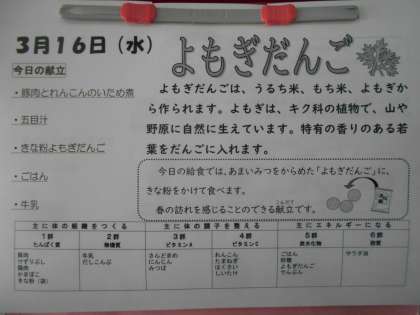 3月16日（水）
よもぎだんご
今日の献立
・豚肉とれんこんのいため煮
・五目汁
・きな粉よもぎだんご
・ごはん
・牛乳
よもぎだんごは、うるち米、もち米、よもぎか
ら作られます。よもぎは、キク科の植物で、山や
野原に自然に生えています。特有の香りのある若
葉をだんごに入れます。
今日の給食では、あまいみつをからめた「よもぎだんご」に、
きな粉をかけて食べます。
春の訪れを感じることのできる献立です。
主に体の組織をつくる 主に体の調子を整える 主にエネルギーになる
1群 2群 3群 4群 5群 6群
たんぱく質 無機質 ビタミンA ビタミンC 炭水化物 脂質
豚肉 牛乳 さんどまめ れんこん ごはん サラダ油
けずりぶし だしこんぶ にんじん たまねぎ 砂糖
鶏肉 みつば はくさい よもぎだんご
かまぼこ しいたけ でんぷん
きな粉